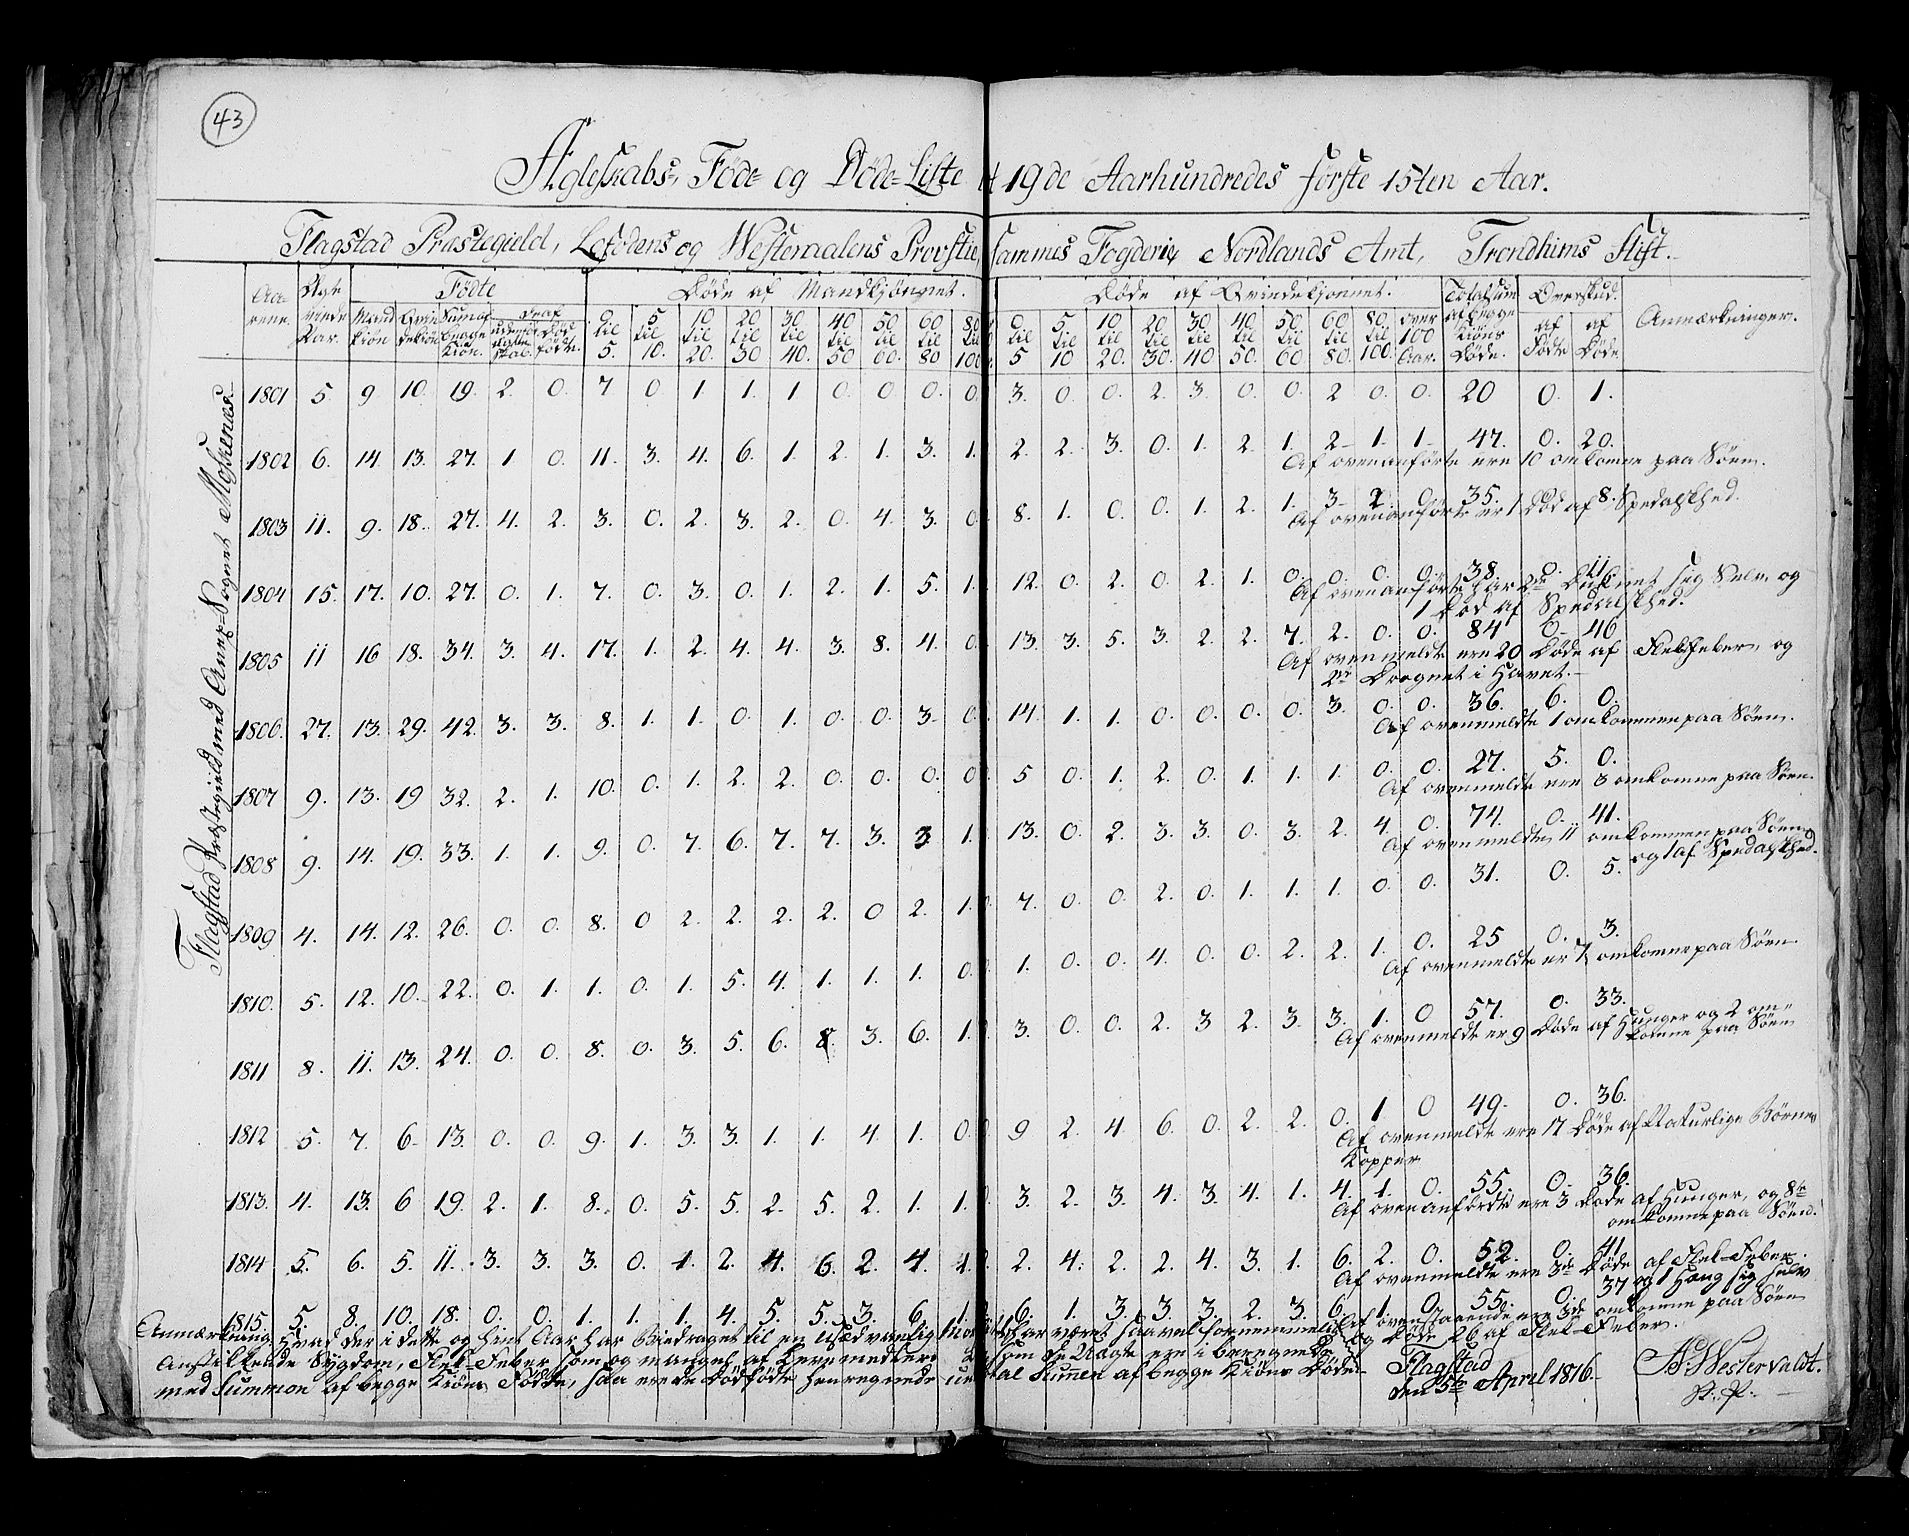 43
Ægteskabs, Föde- og Döde-Liste 19de Aarhundredes förste 15ten Aar.
Flagstad Præstegield, Lofodens og Westeraalens Provstie, sammes Fogderie, Nordlands Amt, Trondhims Stift.
Födte Döde af Mandkjönnet. Döde af Qvindekjönnet. Totalsum af begge Kiöns Döde. Overskud. Anmærkninger.
Aarene. Ægteviede Par. Mandkiön Qvindekiön Summa af begge Kiön. deraf udenfor Ægteskab. Död-födte. 0 til 5. 5 til 10. 10 til 20. 20 til 30 30 til 40. 40 til 50 50 til 60. 60 til 80 80 til 100 0. til 5 5. til 10 10 til 20. 20 til 30. 30 til 40 40 til 50. 50. til 60 60 til 80. 80. til 100. over 100 Aar. af Födte af Döde
Flagstad Præstegield med Anex-Sognet Moskenes.
1801 5 9. 10. 19. 2. 0. 7 0 1 1. 1 0 0 0 0. 3. 0. 0. 2. 3. 0. 0. 2 0. 0. 20 0. 1.
1802 6. 14. 13. 27. 1 0. 11. 3. 4. 6. 1. 2. 1. 3. 1. 2. 2. 3. 0 1. 2. 1. 2. 1. 1. 47. 0. 20.
Af ovenanförte ere 10 omkomne paa Söen.
1803 11. 9. 18. 27. 4. 2. 3. 0. 2. 3. 2. 0 4. 3. 0. 8. 1. 0. 0. 1. 2. 1. 3. 2. 0. 35. 8.
Af ovenanförte er 1 Död af Spedalskhed.
1804 15. 17. 10. 27. 0. 1. 7. 0. 3. 0. 1. 2. 1. 5. 1. 12. 0. 2. 0. 2. 1. 0. 0. 0. 0. 38. 0. 11.
Af ovenanförte har 2de sig Selv, og
1 Död af Spedalskhed.
1805 11 16 18. 34. 3. 4. 17. 1. 2. 4. 4. 3. 8. 4. 0. 13. 3. 5. 3. 2. 2. 7. 2. 0. 0. 84 0. 46
Af ovenmeldte ere 20 Döde af Flekfeber, og
2de Drognet i Havet.
1806. 27. 13. 29. 42. 3. 3. 8. 1. 1. 0. 1. 0. 0. 3. 0. 14. 1. 1. 0. 0. 0. 0. 3. 0. 0. 36. 6. 0.
Af ovenmeldte 1 omkommen paa Söen.
1807 9. 13. 19 32. 2. 1. 10. 0. 1. 2. 2. 0. 0. 0. 0. 5 0. 1. 2. 0. 1. 1. 1. 0. 0. 27. 5. 0.
Af ovenmeldte ere 3 omkomne paa Söen.
1808 9. 14. 19. 33. 1. 1. 9. 0. 7. 6. 7. 7. 3. 3 1. 13. 0. 2. 3. 3. 0. 3. 2. 4. 0. 74. 0. 41.
Af ovenmeldte 11 omkommen paa Söen
og 1 af Spedalskhed.
1809 4. 14. 12. 26. 0. 0. 8. 0 2. 2. 2. 2. 0 2. 1. 7. 0. 0. 2. 0. 1. 1. 1. 0 0. 31. 0. 5.
1810. 5. 12. 10. 22. 0. 1. 1. 0. 1. 5. 4. 1. 1. 1. 0. 1. 0. 0. 4. 0. 0. 2. 2. 1. 0. 25 0. 3.
Af ovenmeldte er 7 omkomne paa Söen.
1811 8. 11. 13. 24. 0. 0. 8. 0. 3. 5. 6. 8. 3. 6. 1. 3. 0. 0. 2. 3 2. 3. 3. 1. 0 57. 0. 33.
Af ovenmeldte er 9 Döde af Hunger og 2 om-
komne paa Söen
1812 5. 7. 6. 13 0. 0. 9. 1. 3. 3. 1. 1. 4. 1. 0. 9 2. 4 6. 0. 2. 2. 0. 1 0 49. 0. 36.
Af ovenmeldte ere 17 Döde af Naturlige Börne-
Kopper
1813. 4. 13. 6 19. 2. 1. 8. 0. 5. 5. 2. 5. 2. 1. 1. 3. 2. 3. 4. 3. 4. 1. 4. 1. 0. 55. 0. 36.
Af ovenanfördte ere 3 Döde af Hunger, og 8te
omkomne paa Söen.
1814 5. 6. 5. 11. 3. 3. 3. 0. 1. 2. 4. 6. 2. 4. 4. 2. 4. 2. 2. 4. 3. 1. 6. 2. 0. 52. 0. 41
Af ovenmeldte ere 3de Döde af Flek-Feber.
og 1 Hæng sig selv
1815. 5. 8. 10. 18. 0. 0. 1. 1. 1. 4. 5. 5. 3. 6. 1. 6. 1. 3. 3. 3. 2. 3 6. 1. 0. 55. 0. 37
Af ovenstaaende ere 3de omkomne paa Söen
og Döde 26 af Flek-Feber.
Anmærkning, Hvad der i dette og hint Aar har Biedraget til en Usædvanlig har været saavel fornemmelig
Anstikkende Sygdom, Flek-Feber, som og mangel af som de Unge ere i beregnede
med Summen af begge Kiöns Födte, saa ere de Dödfödte henregnede Sumen af begge Kiöns Döde.
Flagstad
den 5te April 1816.
Westervaldt.
S. P.